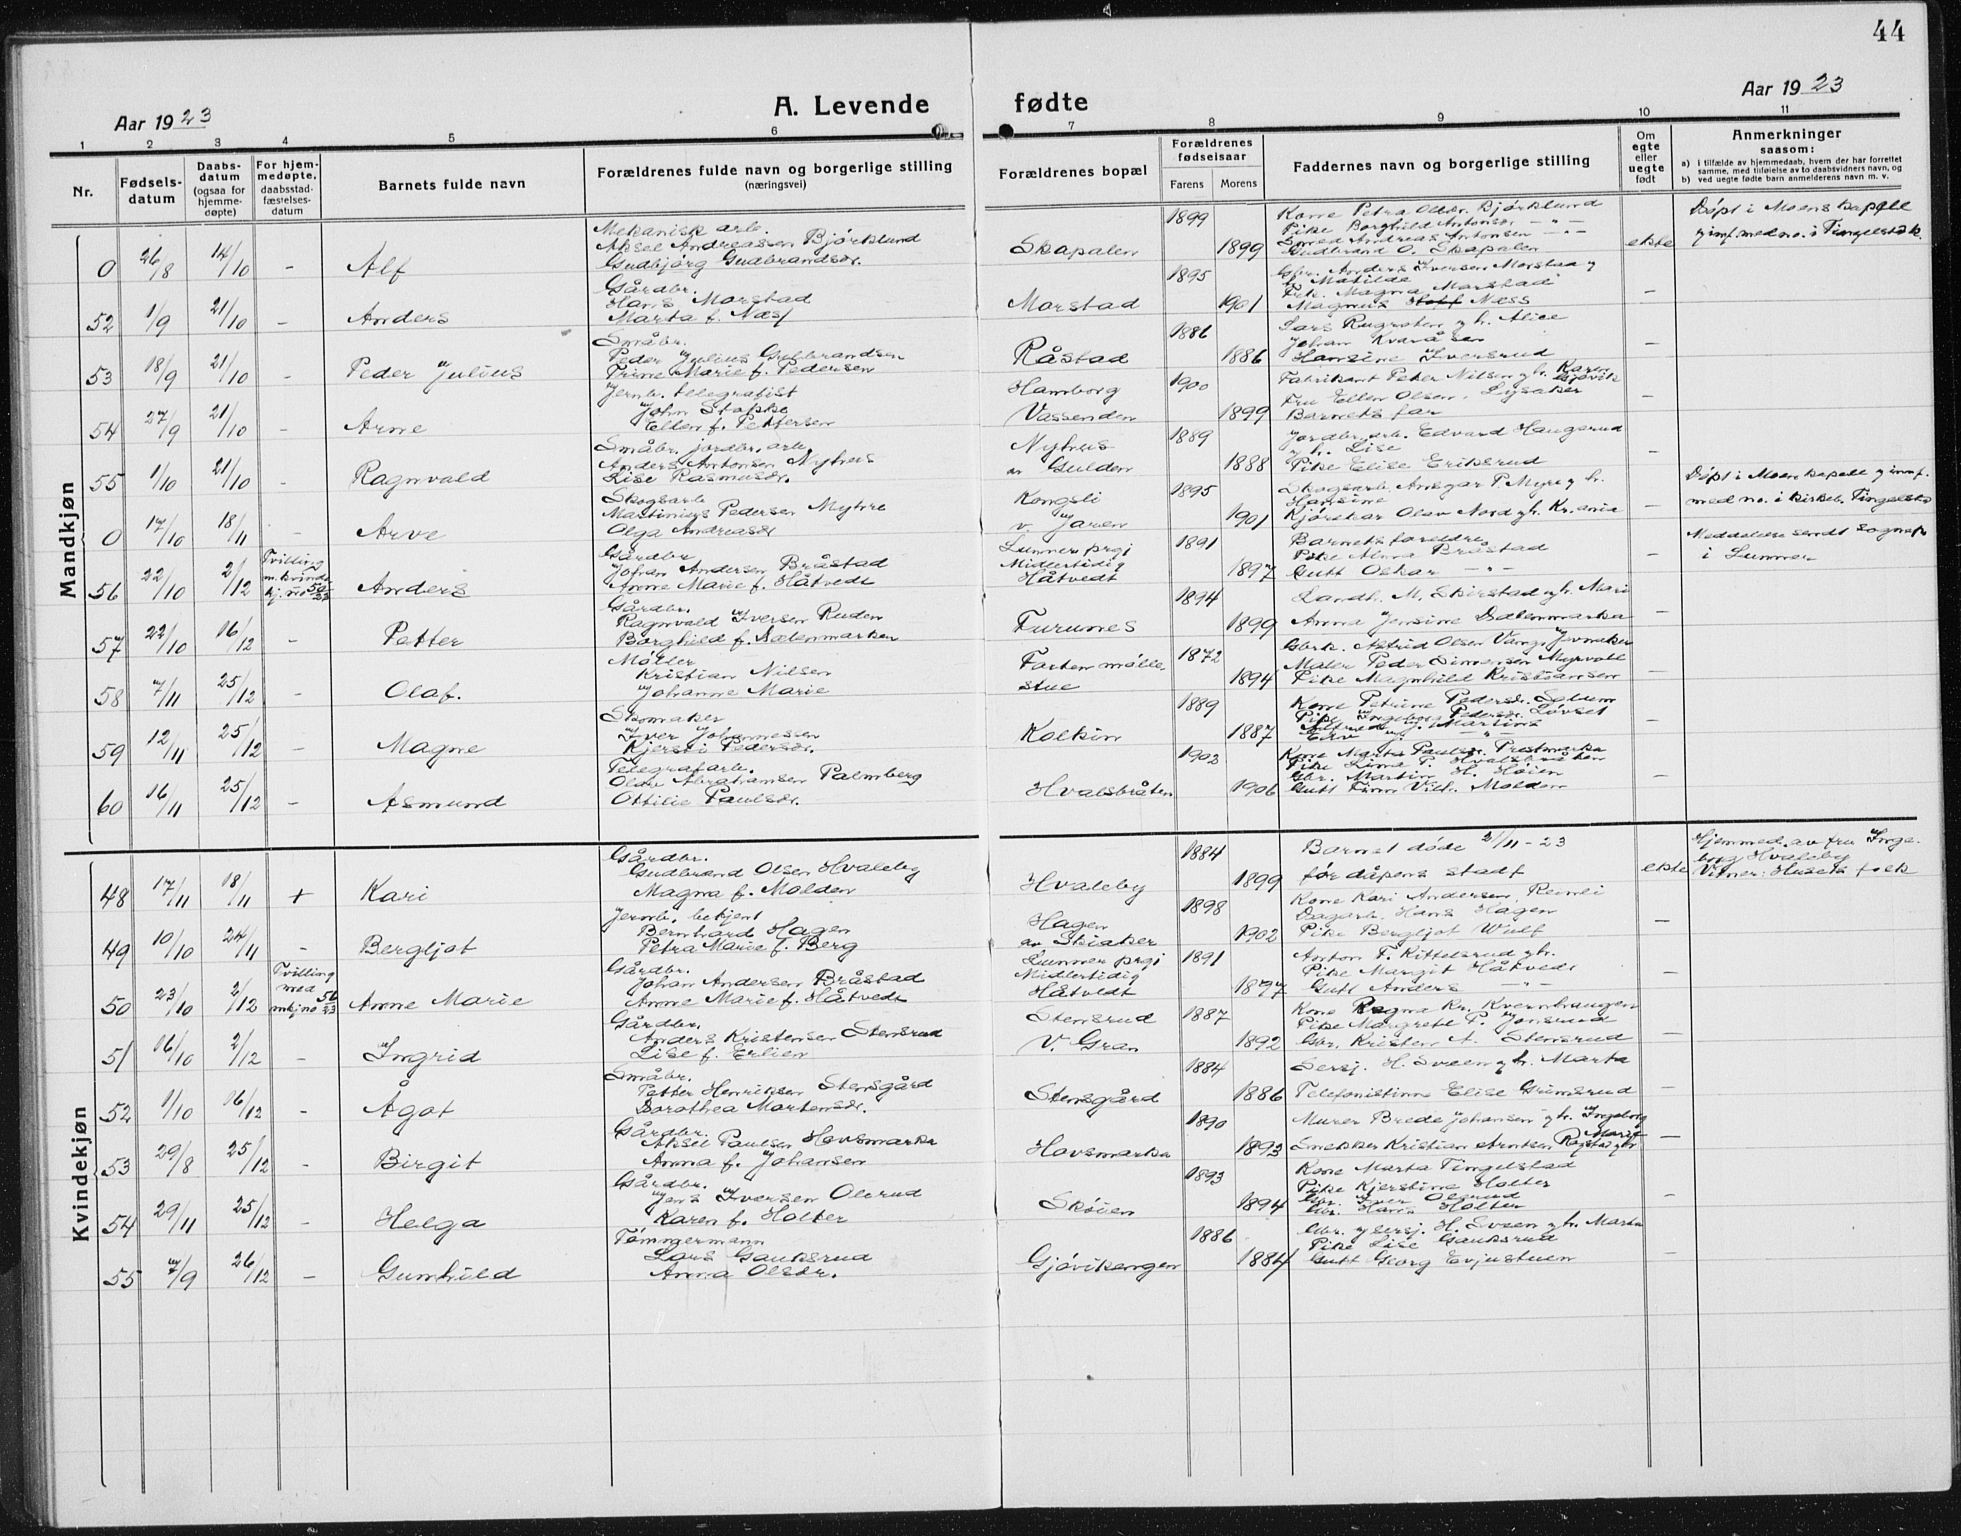 44
Aar 1923
A. Levende fødte
Aar 1923
1 2 3 4 5 6 7 8 9 10 11
Nr.
Fødselsdatum
Daabsdatum (ogsaa for hjemmedøpte)
For hjemmedøpte, daabsstadfæstelsesdatum
Barnets fulde navn
Forældrenes fulde navn og borgerlige stilling (næringsvei)
Forældrenes bopæl
Forældrenes fødselsaar
Farens Morens
Faddernes navn og borgerlige stilling
Om egte eller uegte født
Anmerkninger saasom:
a) i tilfælde av hjemmedaab, hvem der har forrettet samme, med tilføielse av to daabsvidners navn, og
b) ved uegte fødte barn anmelderens navn m. v.
Mandkjøn
0 26/8 14/10 - Alf
Mekanisk arb.
Aksel Andreassen Bjørklund
Gudbjørg Gudbrandsdr.
Skapalen 1899 1899
Kone Petra Olbr. Bjørklund
Pike Borghild Antonsdr. -"-
Smed Andreas Antonsen -"-
Gudbrand O. Skapalen
ekte
Døpt i Moens kapell
og inf. med no. i Tingelstad k.
52 1/9 21/10 - Anders
Gårdbr.
Hans Morstad
Marta f. Næss
Morstad 1895 1901
Gbr. Anders Iversen Morstad og
h. Matilde
Frk. Magna Morstad
Magnus Næss
-
53 18/9 21/10 - Peder Julius
Småbr.
Peder Julius Gulbrandsen
Trine Marie f. Pedersen
Råstad 1886 1886
Lars Rugsten og h. Alice
Johan Kvaråsen
Hansine Iversrud
-
54 27/9 21/10 - Arne
Jernb. telegrafist
John Stapke
Ellen f. Pettersen
Hamborg
Vassenden 1900 1899
Fabrikant Peter Nilsen og h. Karen Gjøvik
Fru Ellen Olsen, Lysaker
Barnets far
-
55 1/10 21/10 - Ragnvald
Småbr. jordbr. arb.
Anders Antonsen Nyhus
Lise Rasmusdr.
Nyhus
av Gulden 1889 1888
Jordbr. arb. Edvard Haugsrud
og h. Lise
Pike Elise Eriksrud
-
0 17/10 18/11 - Arve
Skogsarb
Martinius Pedersen Myhre
Olga Andreasdr
Kongsli
v. Jaren 1895 1901
Skogsarb. Ansgar P. Myre og h.
Hansine
Kjørekar Olav Nord og h. Kr.ania
-
Døpt i Moen kapell og innf.
med no. i kirkeb. Tingelstad
56 22/10 2/12
Tvilling
m. kvinde
kj. no 50/23
Anders
Gårdbr.
Johan Andersen Bråstad
Anne Marie f. Håtvedt
Lunner prgj
Midlertidig
Håtvedt 1891 1897
Barnets foreldre
Pike Alma Bråstad
Gutt Oskar -"-
-
Meddelelse sendt sognepr
i Lunner
57 22/10 16/12 - Petter
Gårdbr.
Ragnvald Iversen Ruden
Borghild f. Dælenmarken
Furumes 1894 1899
Landh. M. Skirstad og h. Mari
Anna Jensine Dælenmarka
-
58 7/11 25/12 - Olaf.
Møller
Kristian Nilsen
Johanne Marie
Farten mølle
stue 1872 1894
Gbrk. Astrid Olsen Vang, Jevnaker
Maler Peder Simensen Myrvoll
Pike Magnhild Kristiansen
-
59 12/11 25/12 - Magne
Skomaker
Iver Johannessen
Kjersti Pedersdr.
Kolkin 1889 1887
Kone Petrine Pedersdr. Solum
Pike Ingeborg Pedersdr. Løvset
-
60 16/11 25/12 - Asmund
Telegrafarb.
Olav Abrahamsen Palmberg
Ottilie Paulsdr.
Hvalsbråten 1902 1906
Kone Marta Paulsdr. Prestmarka
Pike Line P. Hvalsbråten
Gbr. Martin H. Høien
Gutt Finn Vilh. Molden
-
Kvindekjøn
48 17/11 18/11 + Kari
Gårdbr.
Gudbrand Olsen Hvaleby
Magna f. Molden
Hvaleby 1884 1899
Barnet døde 21/11-23
før dåpens stadf
ekte
Hjemmed. av fru Ingeborg Hvaleby
Vitner: Husets folk
49 10/10 24/11 - Bergljot
Jernb. betjent
Bernhard Hagen
Petra Marie f. Berg
Hagen
av Skiaker 1898 1902
Kone Kari Andersen, Reinli
Dagarb. Hans Hagen
Pike Bergljot Wulf
-
50 23/10 2/12
Tvilling
med
mkj no 56/23
Anne Marie
Gårdbr.
Johan Andersen Bråstad
Anne Marie f. Håtvedt
Lunner prgj
Midlertidig
Håtvedt 1891 1897
Anton F. Kittelsrud og h.
Pike Margit Håtvedt
Gutt Anders -"-
-
51 16/10 2/12 - Ingrid
Gårdbr.
Anders Kristensen Stensrud
Lise f. Erlien
Stensrud
V. Gran 1887 1892
Kone Ragna Kr. Kvernhaugen
Pike Margrete P. Jonsrud
Gbr. Kristen A. Stensrud
-
52 1/10 16/12 - Ågot
Småbr.
Petter Henriksen Stensgård
Dorothea Mortensdr.
Stensgård 1884 1886
Sersj. H. Sveen og h. Marta
Telefonistinne Elise Grimsrud
-
53 29/8 25/12 - Birgit
Gårdbr.
Aksel Paulsen Hovsmarka
Anna f. Johansen
Hovsmarka 1890 1893
Murer Brede Johansen og h. Ingeborg
Snekker Kristian Arntsen Rogstad og h. Marit
-
54 29/11 25/12 - Helga
Gårdbr.
Jens Iversen Olerud
Karen f. Holter
Skøien 1893 1894
Kone Marta Tingelstad
Pike Kjerstine Holter
Gbr. Iver Olerud
Gbr. Hans Holter
-
55 7/9 26/12 - Gunhild
Tømmermann
Lars Gauksrud
Anna Olsdr.
Gjøvikengen 1886 1884
Gbr. og sersj. H. Sveen og h. Marta
Pike Lise Gauksrud
Gutt Georg Evjustuen
-